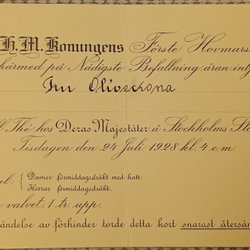 H. M. Konungens Förste Hovmars
härmed på Nådigste Befallning äran int
Fru Olivecrona
l Thé hos Deras Majestäter å Stockholms Sl
Tisdagen den 24 Juli 1928 kl. 4 e.m.
el: { Damer förmiddagsdräkt med hatt.
Herrar förmiddagsdräkt.
valvet, 1 tr. upp.
händelse av förhinder torde detta kort snarast återsän